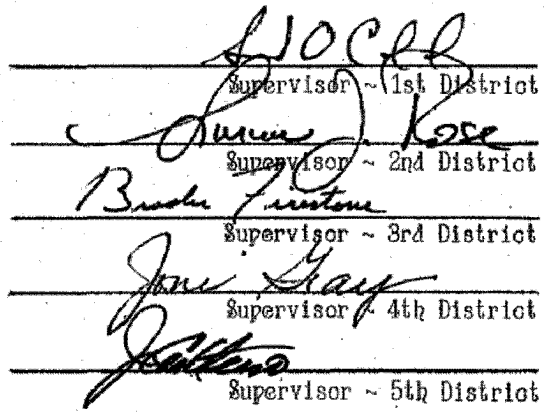 Supervisor ~ 1st District
J. Rose
Supervisor ~ 2nd District
Brooks Firestone
Supervisor ~ 3rd District
Joni Gray
Supervisor ~ 4th District
Supervisor ~ 5th District